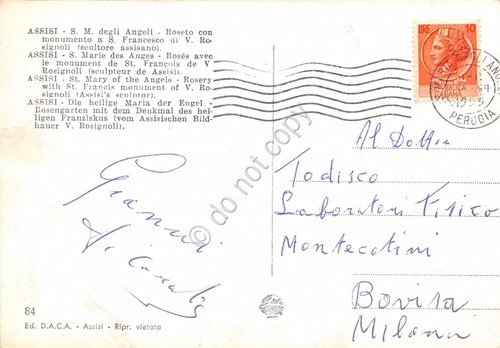 ASSISI - S. M. degli Angeli - Roseto con
monumento a S. Francesco di V. Ro-
signoli (scultore assisano).
ASSISI - S. Marie des Anges - Rosés avec
le monument de St. François de V
Rosignoli (sculpteur de Assisi).
ASSISI - St. Mary of the Angels - Rosery
with St. Francis monument of V. Ro-
signoli (Assisi's sculptor).
ASSISI - Die heilige Maria der Engel -
Rosengarten mit dem Denkmal des hei-
ligen Franziskus (vom Assisischen Bild-
hauer V. Rosignoli).
LIRE 10
PERUGIA
Al Dottor
Todisco
Laboratori Fisico
Montecatini
Bovisa
Milano
Gianni
do not copy
84
Ed. D.A.C.A. - Assisi - Ripr. vietata